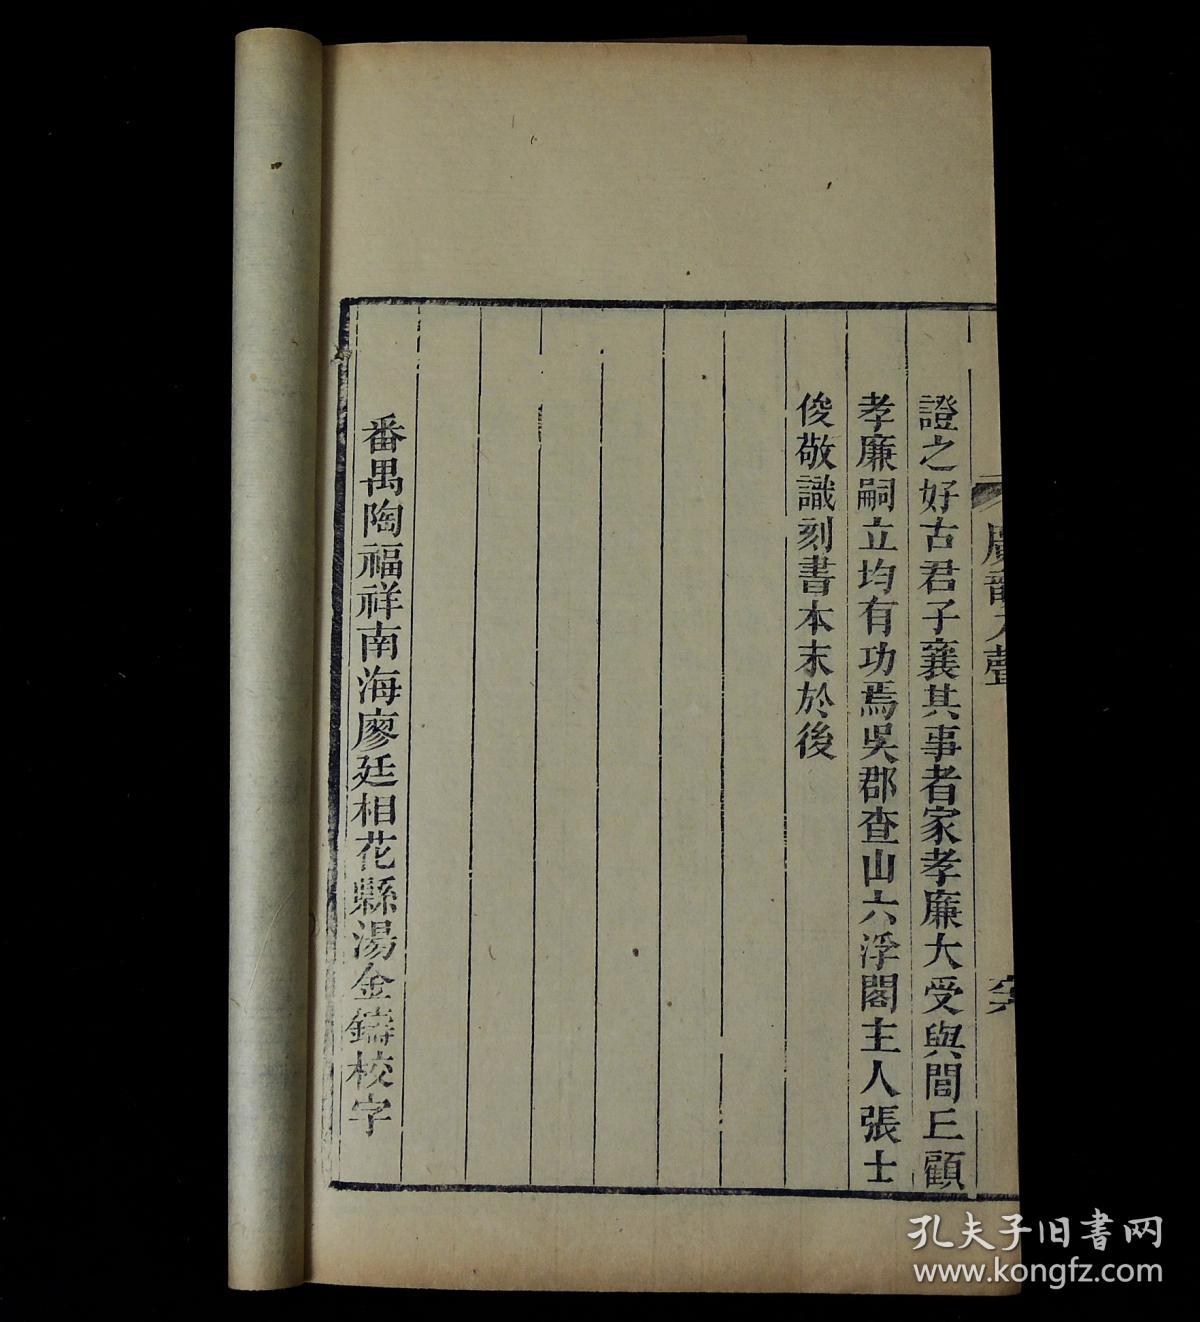 證之好古君子襄其事者家孝廉大受與閶丘顧
孝廉嗣立均有功焉吳郡查山六浮閣主人張士
俊敬識刻書本末於後
番禺陶福祥南海廖廷相花縣湯金鑄校字
孔夫子旧书网
www.kongfz.com